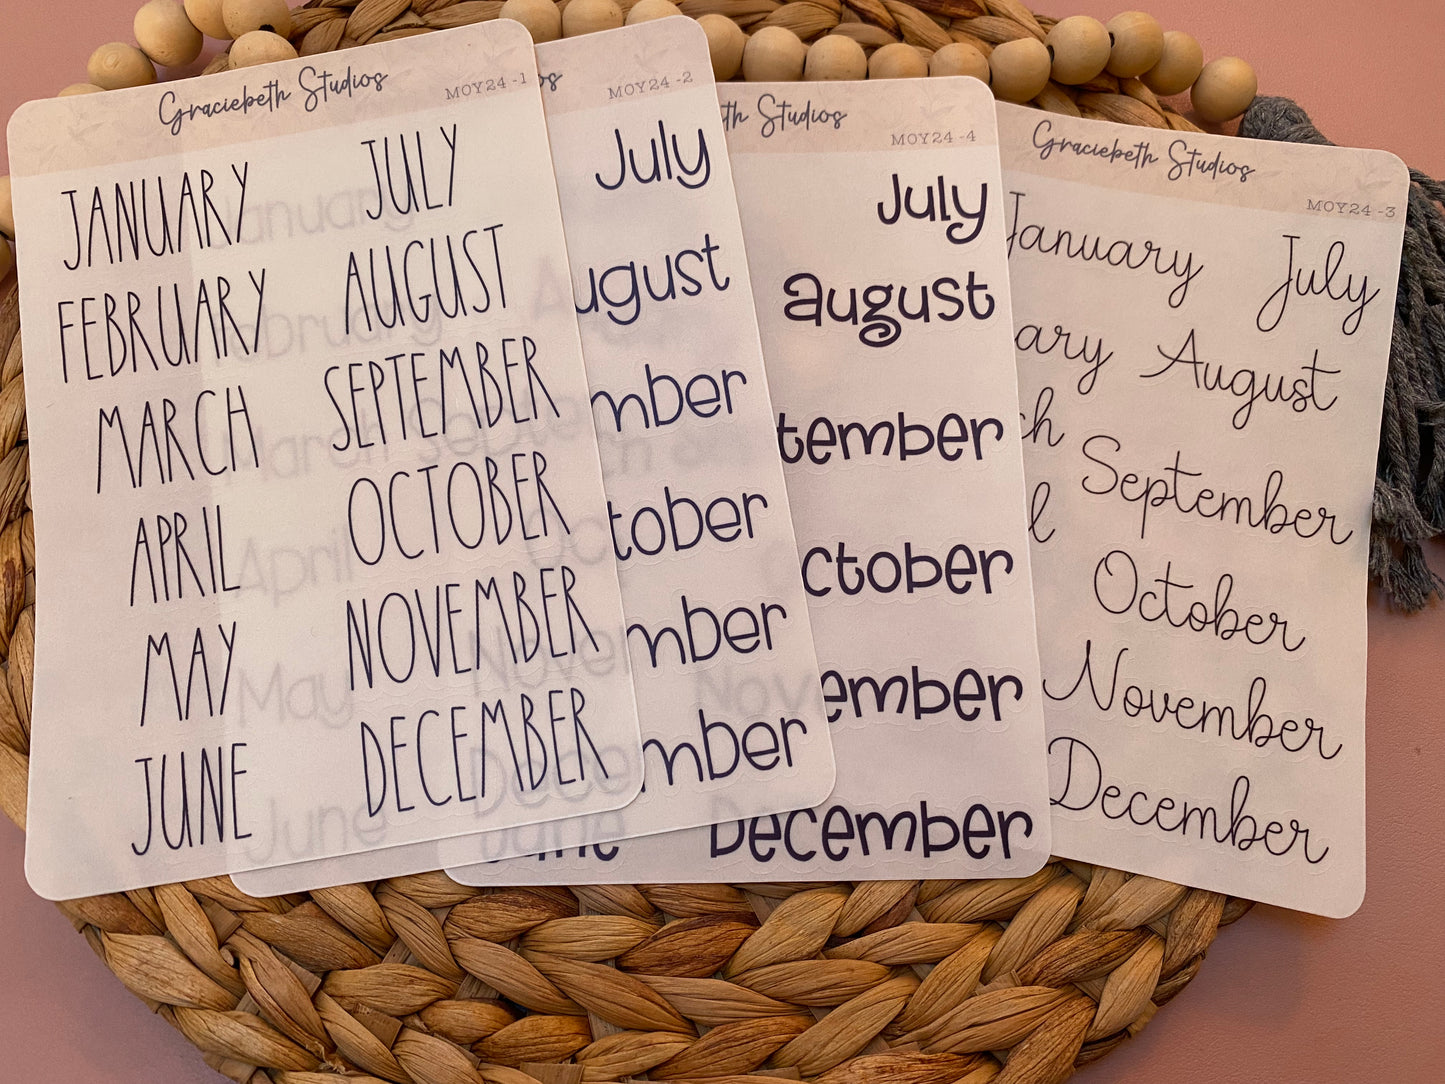 Graciebeth Studios
MOY24 -1
JANUARY JULY
FEBRUARY AUGUST
MARCH SEPTEMBER
APRIL OCTOBER
MAY NOVEMBER
JUNE DECEMBER
os
MOY24 -2
July
ugust
mber
tober
mber
mber
th Studios
MOY24 -4
July
august
tember
ctober
ember
June December
Graciebeth Studios
MOY24 -3
January July
ary August
ch September
l October
November
December